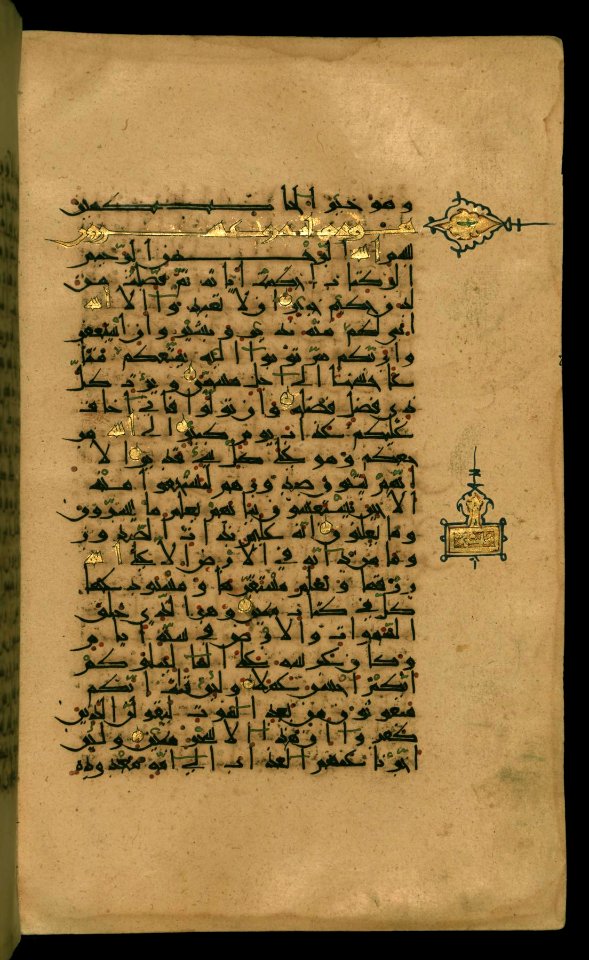 وهو خير الحاكمين
بسم الله الرحمن الرحيم
الر كتاب احكمت اياته ثم فصلت من
لدن حكيم خبير الا تعبدوا الا الله
انني لكم منه نذير وبشير وان استغفر
وا ربكم ثم توبوا اليه يمتعكم متا
عا حسنا الى اجل مسمى ويؤت كل
ذي فضل فضله وان تولوا فاني اخاف
عليكم عذاب يوم كبير الى الله مر
جعكم وهو على كل شي قدير الا
انهم يثنون صدورهم ليستخفوا منه
الا حين يستغشون ثيابهم يعلم ما يسرون
وما يعلنون انه عليم بذات الصدور
وما من دابة في الارض الا على الله
رزقها ويعلم مستقرها ومستودعها
كل في كتاب مبين وهو الذي خلق
السموات والارض في ستة ايام
وكان عرشه على الما ليبلوكم
ايكم احسن عملا ولئن قلت انكم
مبعوثون من بعد الموت ليقولن الذين
كفروا ان هذا الا سحر مبين ولئن
اخرنا عنهم العذاب الى امة معدودة